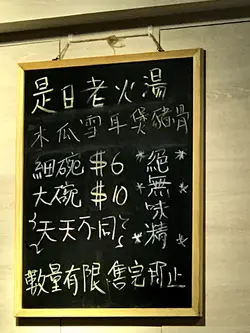 是日老火湯
木瓜雪耳煲豬骨
細碗 $6
大碗 $10
天天不同
*絕*
*無*
*味*
*精*
數量有限 售完即止